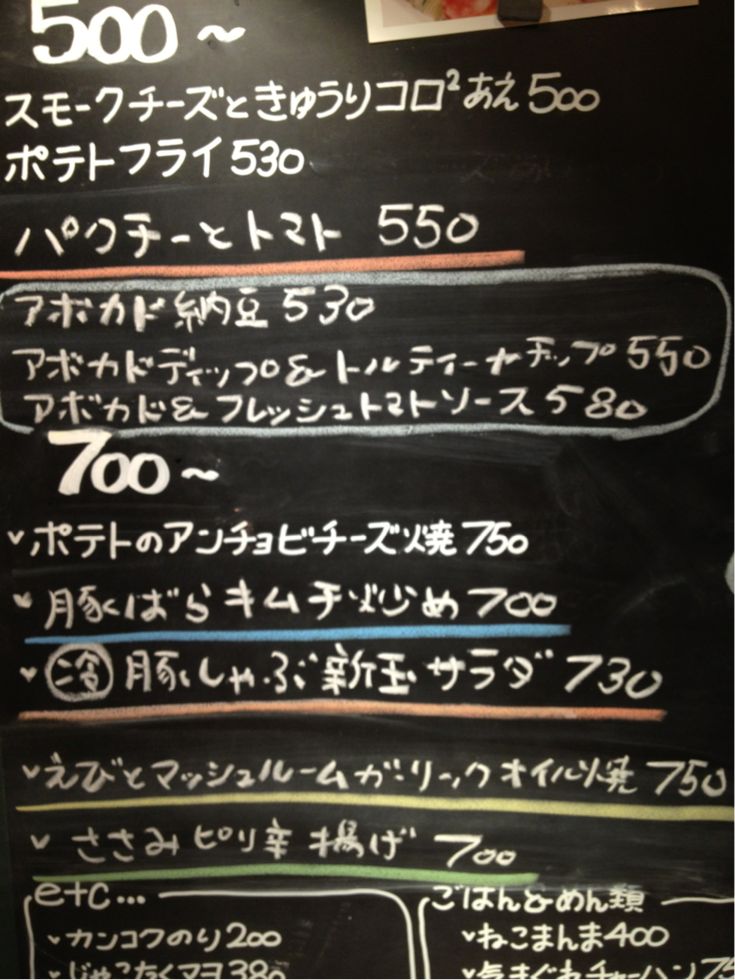 500～
スモークチーズときゅうりコロ²あえ500
ポテトフライ530
パクチーとトマト 550
アボカド納豆530
アボカドディップ&トルティーヤチップ550
アボカド&フレッシュトマトソース580
700～
ポテトのアンチョビチーズ焼750
豚ばらキムチ炒め700
冷 豚しゃぶ新玉サラダ 730
えびとマッシュルームガーリックオイル焼750
ささみピリ辛揚げ 700
etc...
カンコクのり200
じゃこたくマヨ380
ごはん&めん類
ねこまんま400
気まぐれチャーハン